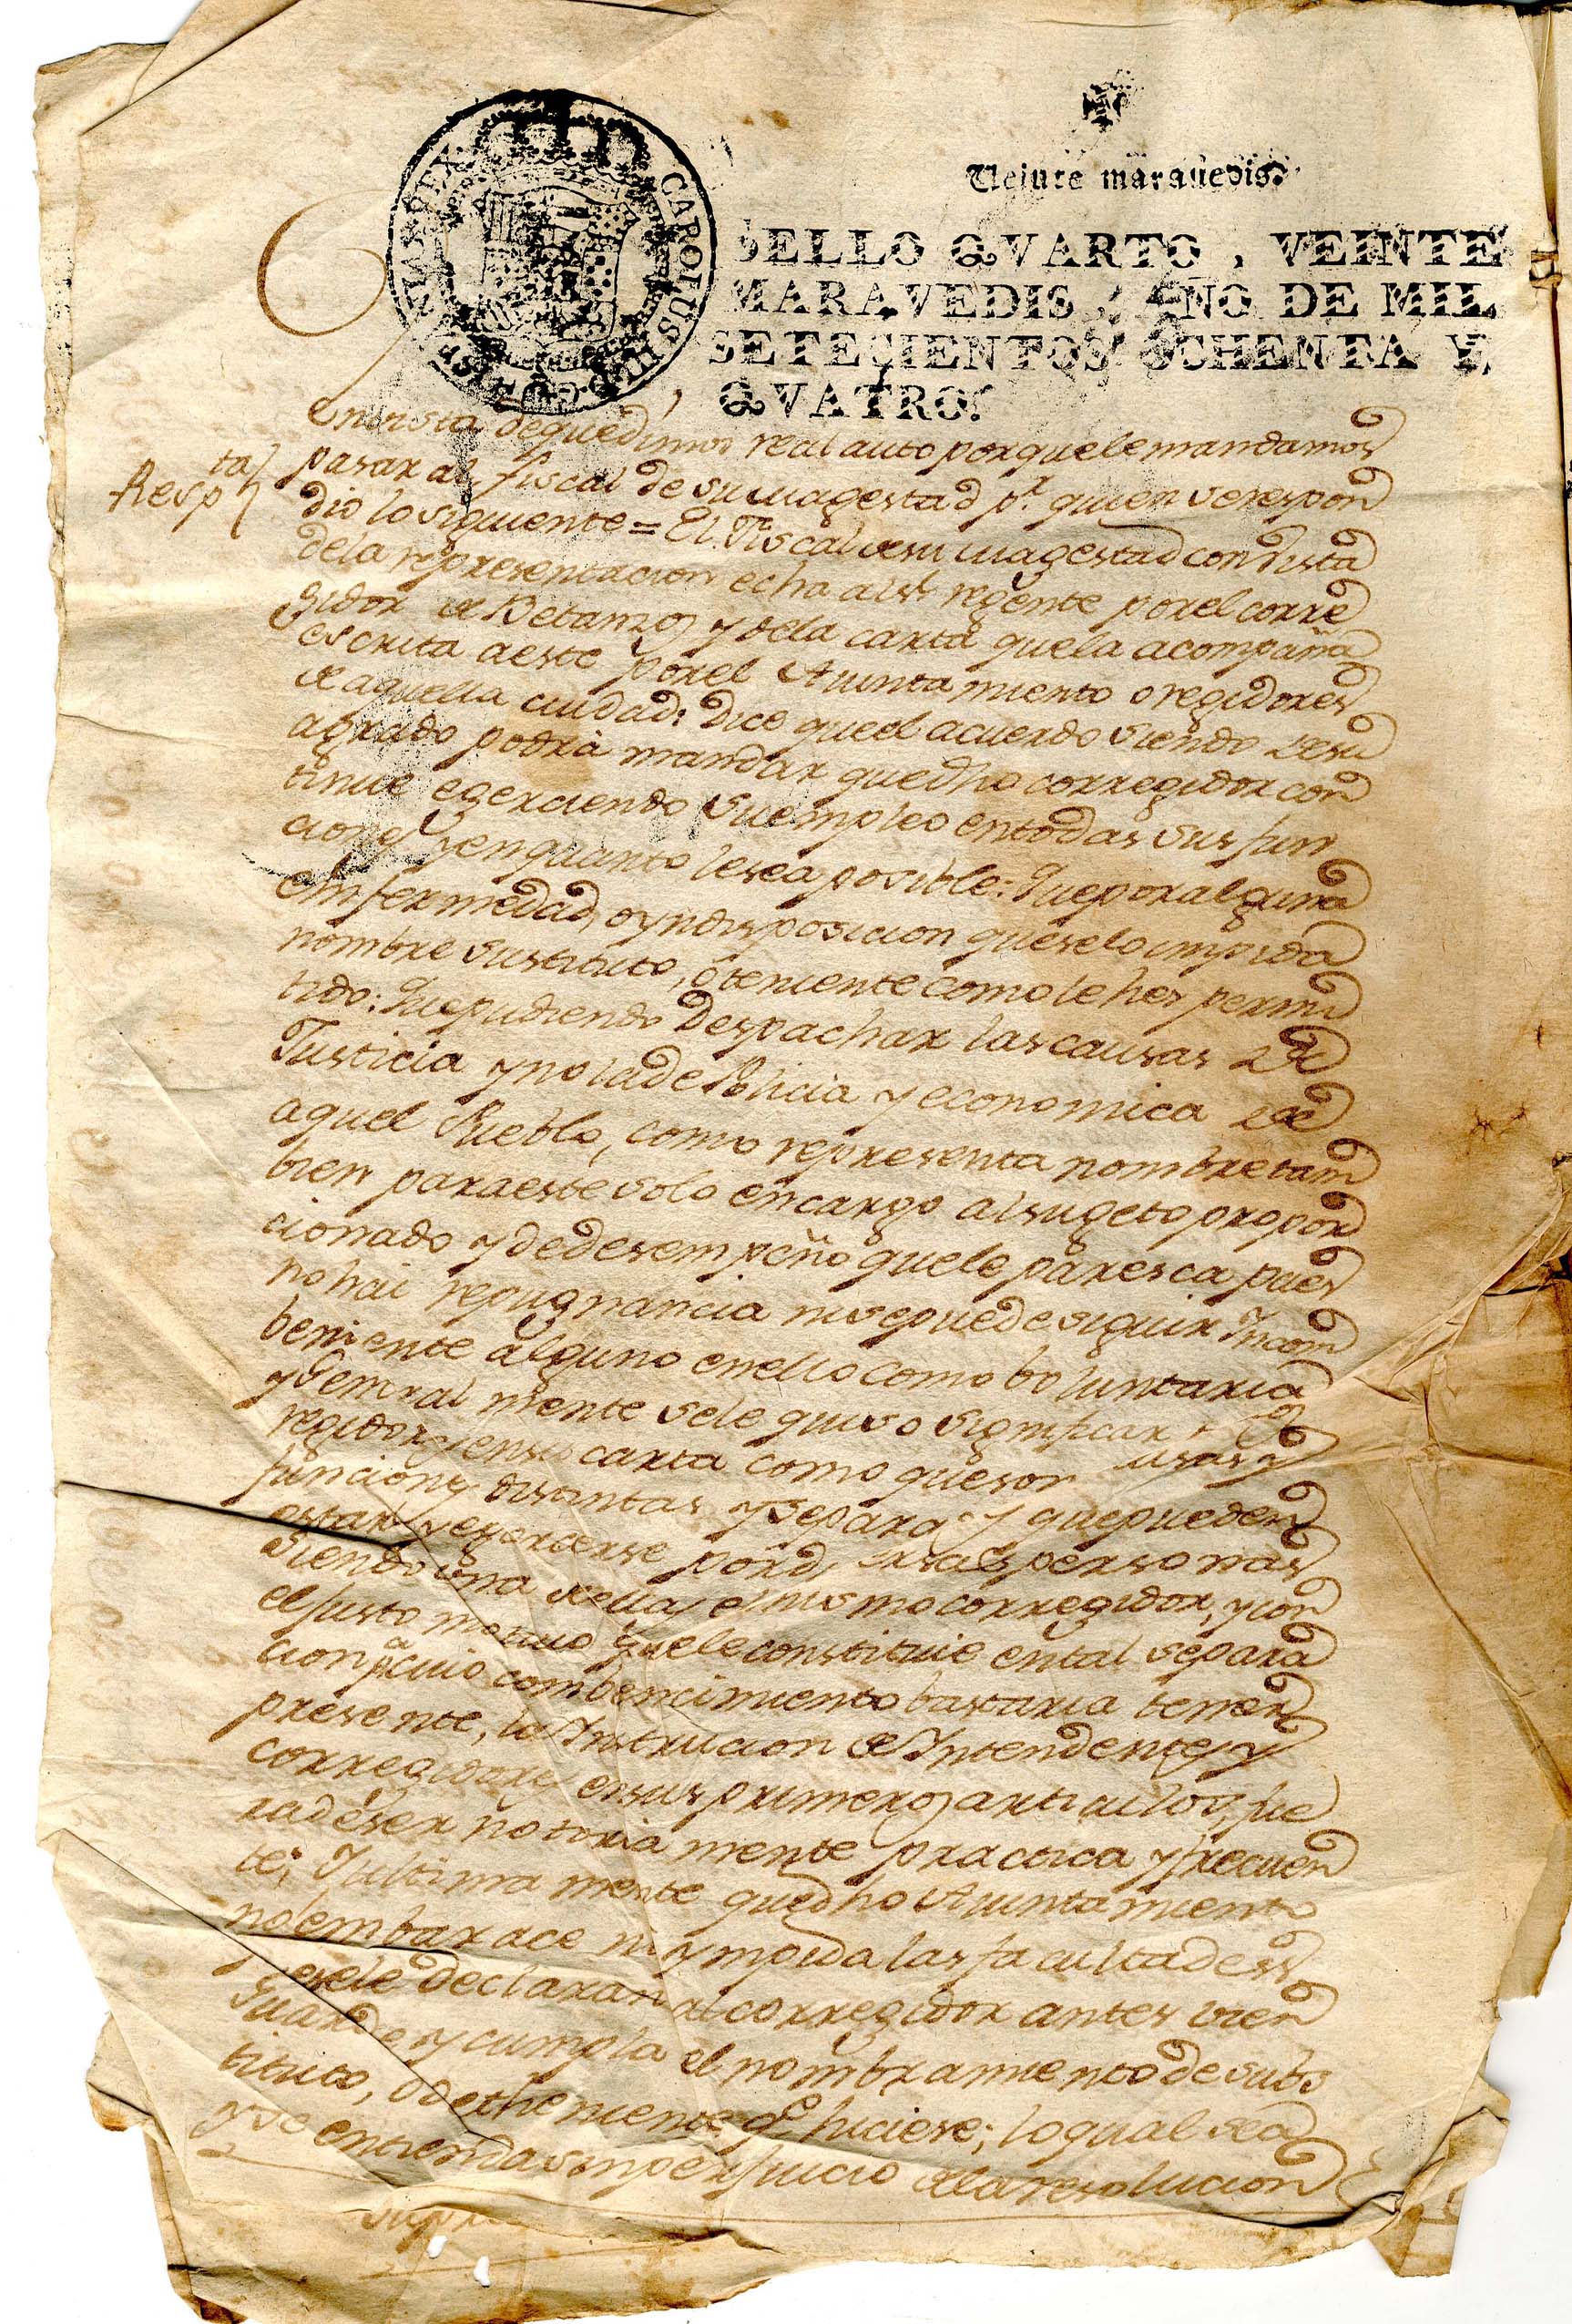 Veinte marauedis.
SELLO QVARTO, VEINTE
MARAVEDIS, AÑO DE MIL
SETECIENTOS OCHENTA Y
QVATRO.
CAROLUS III D G HISPANIAR REX
En vista dequedimos real auto porquelemandamos
Respta
pasar al fiscal de sumagestad pr. quien serespon
dio losiguiente = El Fiscal desu magestad con vista
dela representacion echa alsr. regente porel corre
gidor de Betanzos y dela carta quela acompaña
escrita aeste porel Aiuntamiento o regidores
de aquella ciudad: Dice queel acuerdo siendo desu
agrado podrà mandar quedho corregidor con
tinue egerciendo su empleo entodas sus fun
ciones y enquanto lesea posible: Que por alguna
enfermedad, o yndisposicion queselo impida
nombre sustituto, ò teniente como le hes permi
tido: Que pudiendo Despachar las causas de
Justicia y no la de Policia y economica de
aquel Pueblo, como representa nombre tam
bien paraeste solo encargo alsugeto propor
cionado y dedesempeño quele paresca pues
no hai repugnancia nisepuede siguir Incom
beniente alguno enello como boluntaria
y General mente sele quiso significar
regidores ensu carta como queson
funciones distintas y separa y quepueden
estar y egercerse por personas
siendo una dellas el mismo corregidor, y con
el justo motiuo quele constituie ental separa
cion pa. cuio combencimiento bastaria tener
presente, la Instrucion de Intendentes y
corregidores ensus primeros articulos, fue
radeser notoria mente practica y frecuen
te; Y ultima mente quedho Aiuntamiento
no embarace ni ympida las facultades
sele declaran al corregidor antes bien
Guarde y cumpla el nombramiento de subs
tituto, o dethe niente qe. hiciere; lo qual sea
y se entienda sinperjuicio dela resolucion